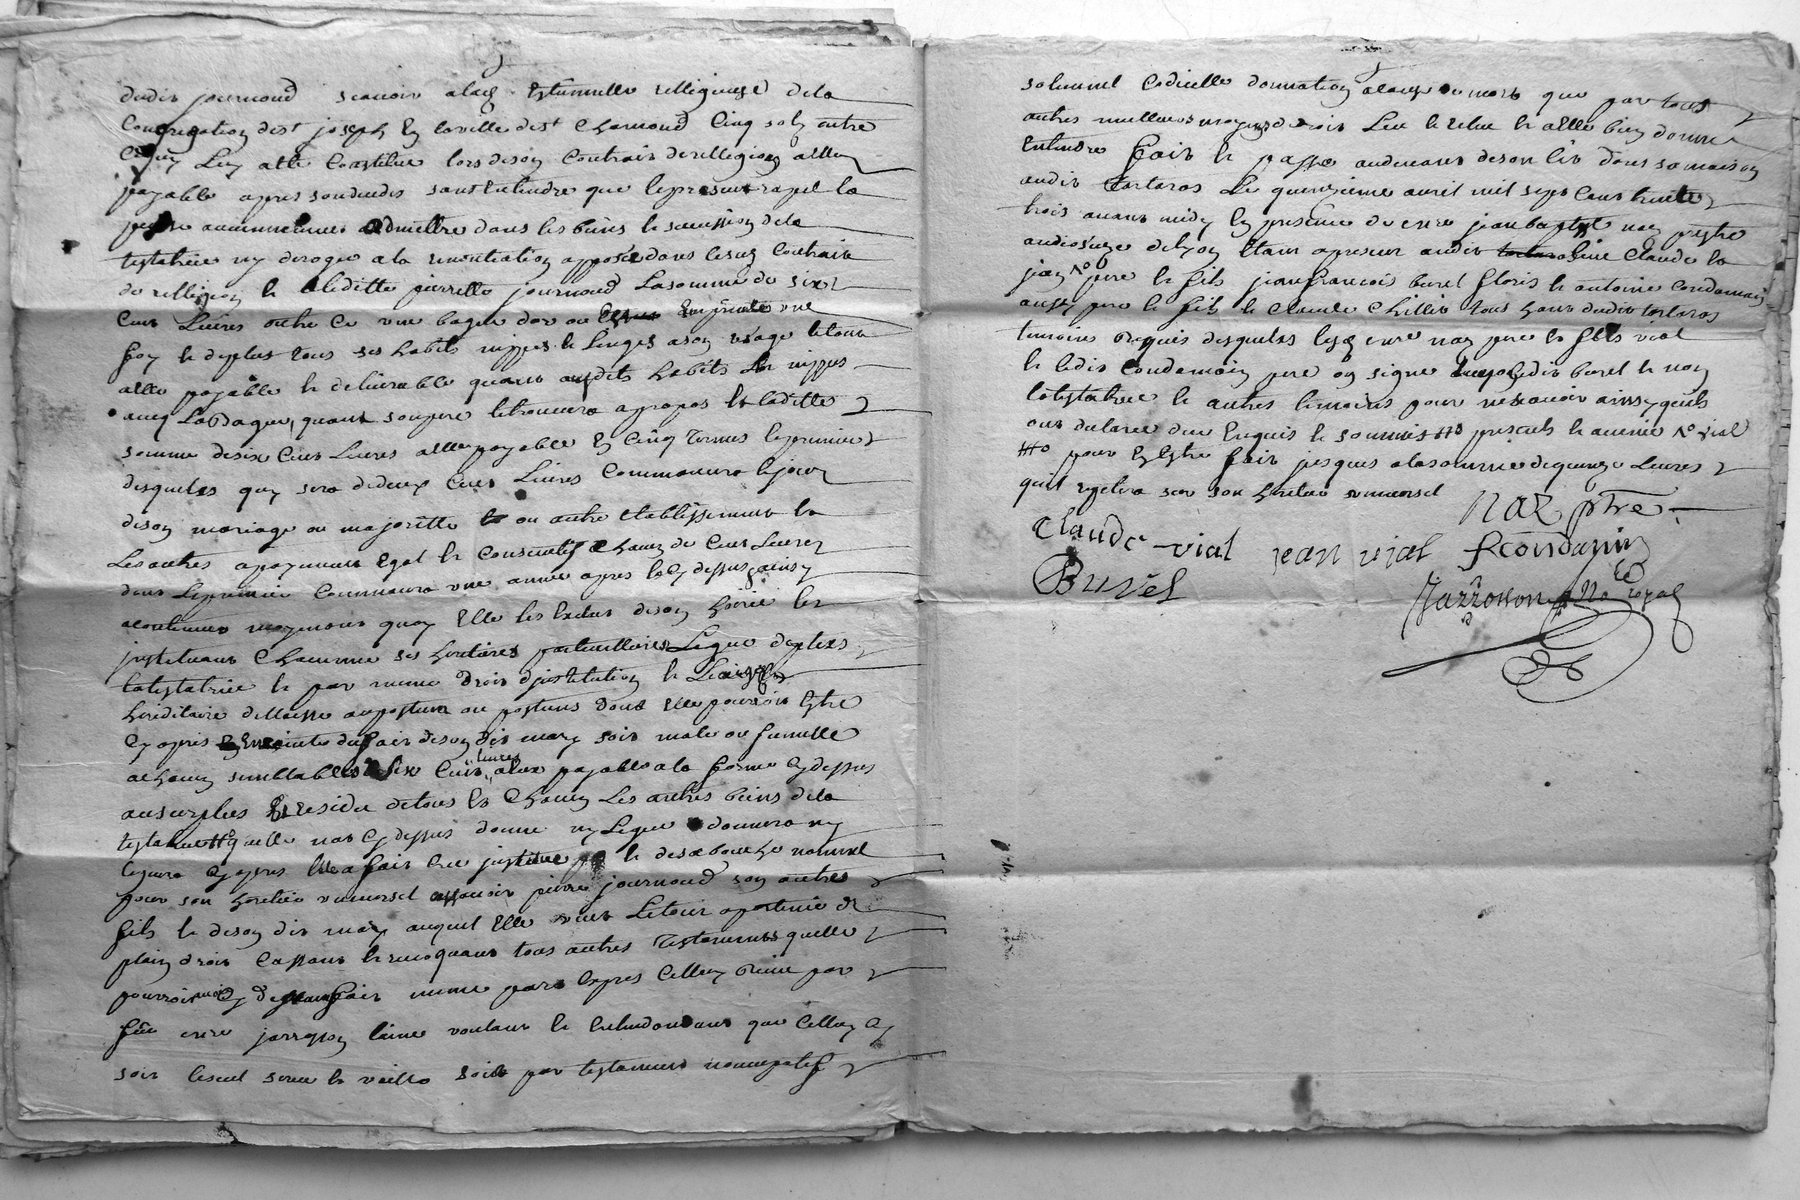 dudit journoud scavoir a lad Estiennette religieuse de la
Congregation de st joseph En la ville de st Chamond Cinq sols outre
Ce quy Luy a eté Constitue lors de son Contrait de relligion a elle
payable apres son deceds sans Entendre que le present rapel la
puisse aucunnement admettre dans les biens et sucession de la
testatrice ny deroger a la renontiation apposée dans le susd Contrait
de rellegion et a laditte pierrette journoud La somme de six
Cent Livres outre Ce une bague d'or ou Est Emprinte une
foy et de plus tous ses habits nippes et Linges a son usage le tout
a elle payable et delivrable quant ausdits habits et nippes
avec La Bague, quant son pere le trouvera a propos et laditte
somme de six Cent Livres a elle payable En Cinq Termes le premier
desquels quy sera de deux Cent Livres Commancera le jour
de son mariage ou majoritte ou autre etablissement et
Les autres a payement Egal et Consecutif Chacun de Cent Livres
dont Le premier Commancera une année apres led dessus et ainsy
a continuer moyennant quoy Elle les Exclut de son hoirie les
jnstituant Chacunne ses heritieres particullieres Legue de plus
la testatrice et par meme Droit d'jnstitution et Laisse
hereditaire dellaisse au postume ou postumes dont Elle pourroit Estre
Cy apres Enceinte du fait de son dit mary soit male ou femelle
a Chacun semblables six Cent livres a eux payable a la forme Cy dessus
au surplus Et residu de tous Et Chacun Les autres biens de la
testatrice quelle n'at Cy dessus donné ny Legué donnera ny
leguera Cy apres Elle a fait Cree jnstitue et de sa bouche nommé
pour son heretier universel assavoir pierre journoud son autre
fils et de son dit mary auquel Elle veut Le tout apartenir de
plain droit Cassant et revoquant tous autres Testaments quelle
pourroit avoir Cy devant fait meme par Expres Celluy Receu par
feu me jarrosson laine voulant et Entendant que Celluy Cy
soit le seul seure et vaille soit par testament noncupatif
solennel Codicille donnation a Cause de mort que par tous
autres meilleurs moyens de droit Leu et Releu et a Elle bien donné
Entendre fait et passé au devant de son lit dans sa maison
audit tartaras Le quinzieme avril mil sept Cent trente
trois avant midy En presence de me jean baptiste naz prestre
du diosceze de Lyon Etant a present audit lieu Claude et
jean vial pere et fils jean francois burel floris et antoine Condamin
aussy pere et fils et Claude Chillet tous hant dudit tartaras
temoins Requis desquels lesd me naz pere et fils vial
et ledit Condamin pere on signe avec ledit burel et non
la testatrice et autres temoins pour ne scavoir ainsy quils
ont declaré de ce Enquis et sommés
pour Estre fait jusques a la somme de quinze Livres
quil repetera sur son heritier universel
Naz ptre
Claude vial jean vial f condamin
Burel
Jarrosson No royal